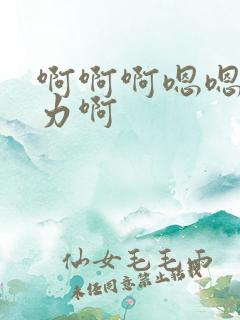 啊啊啊嗯嗯
力啊
仙女毛毛雨
未经同意禁止转载